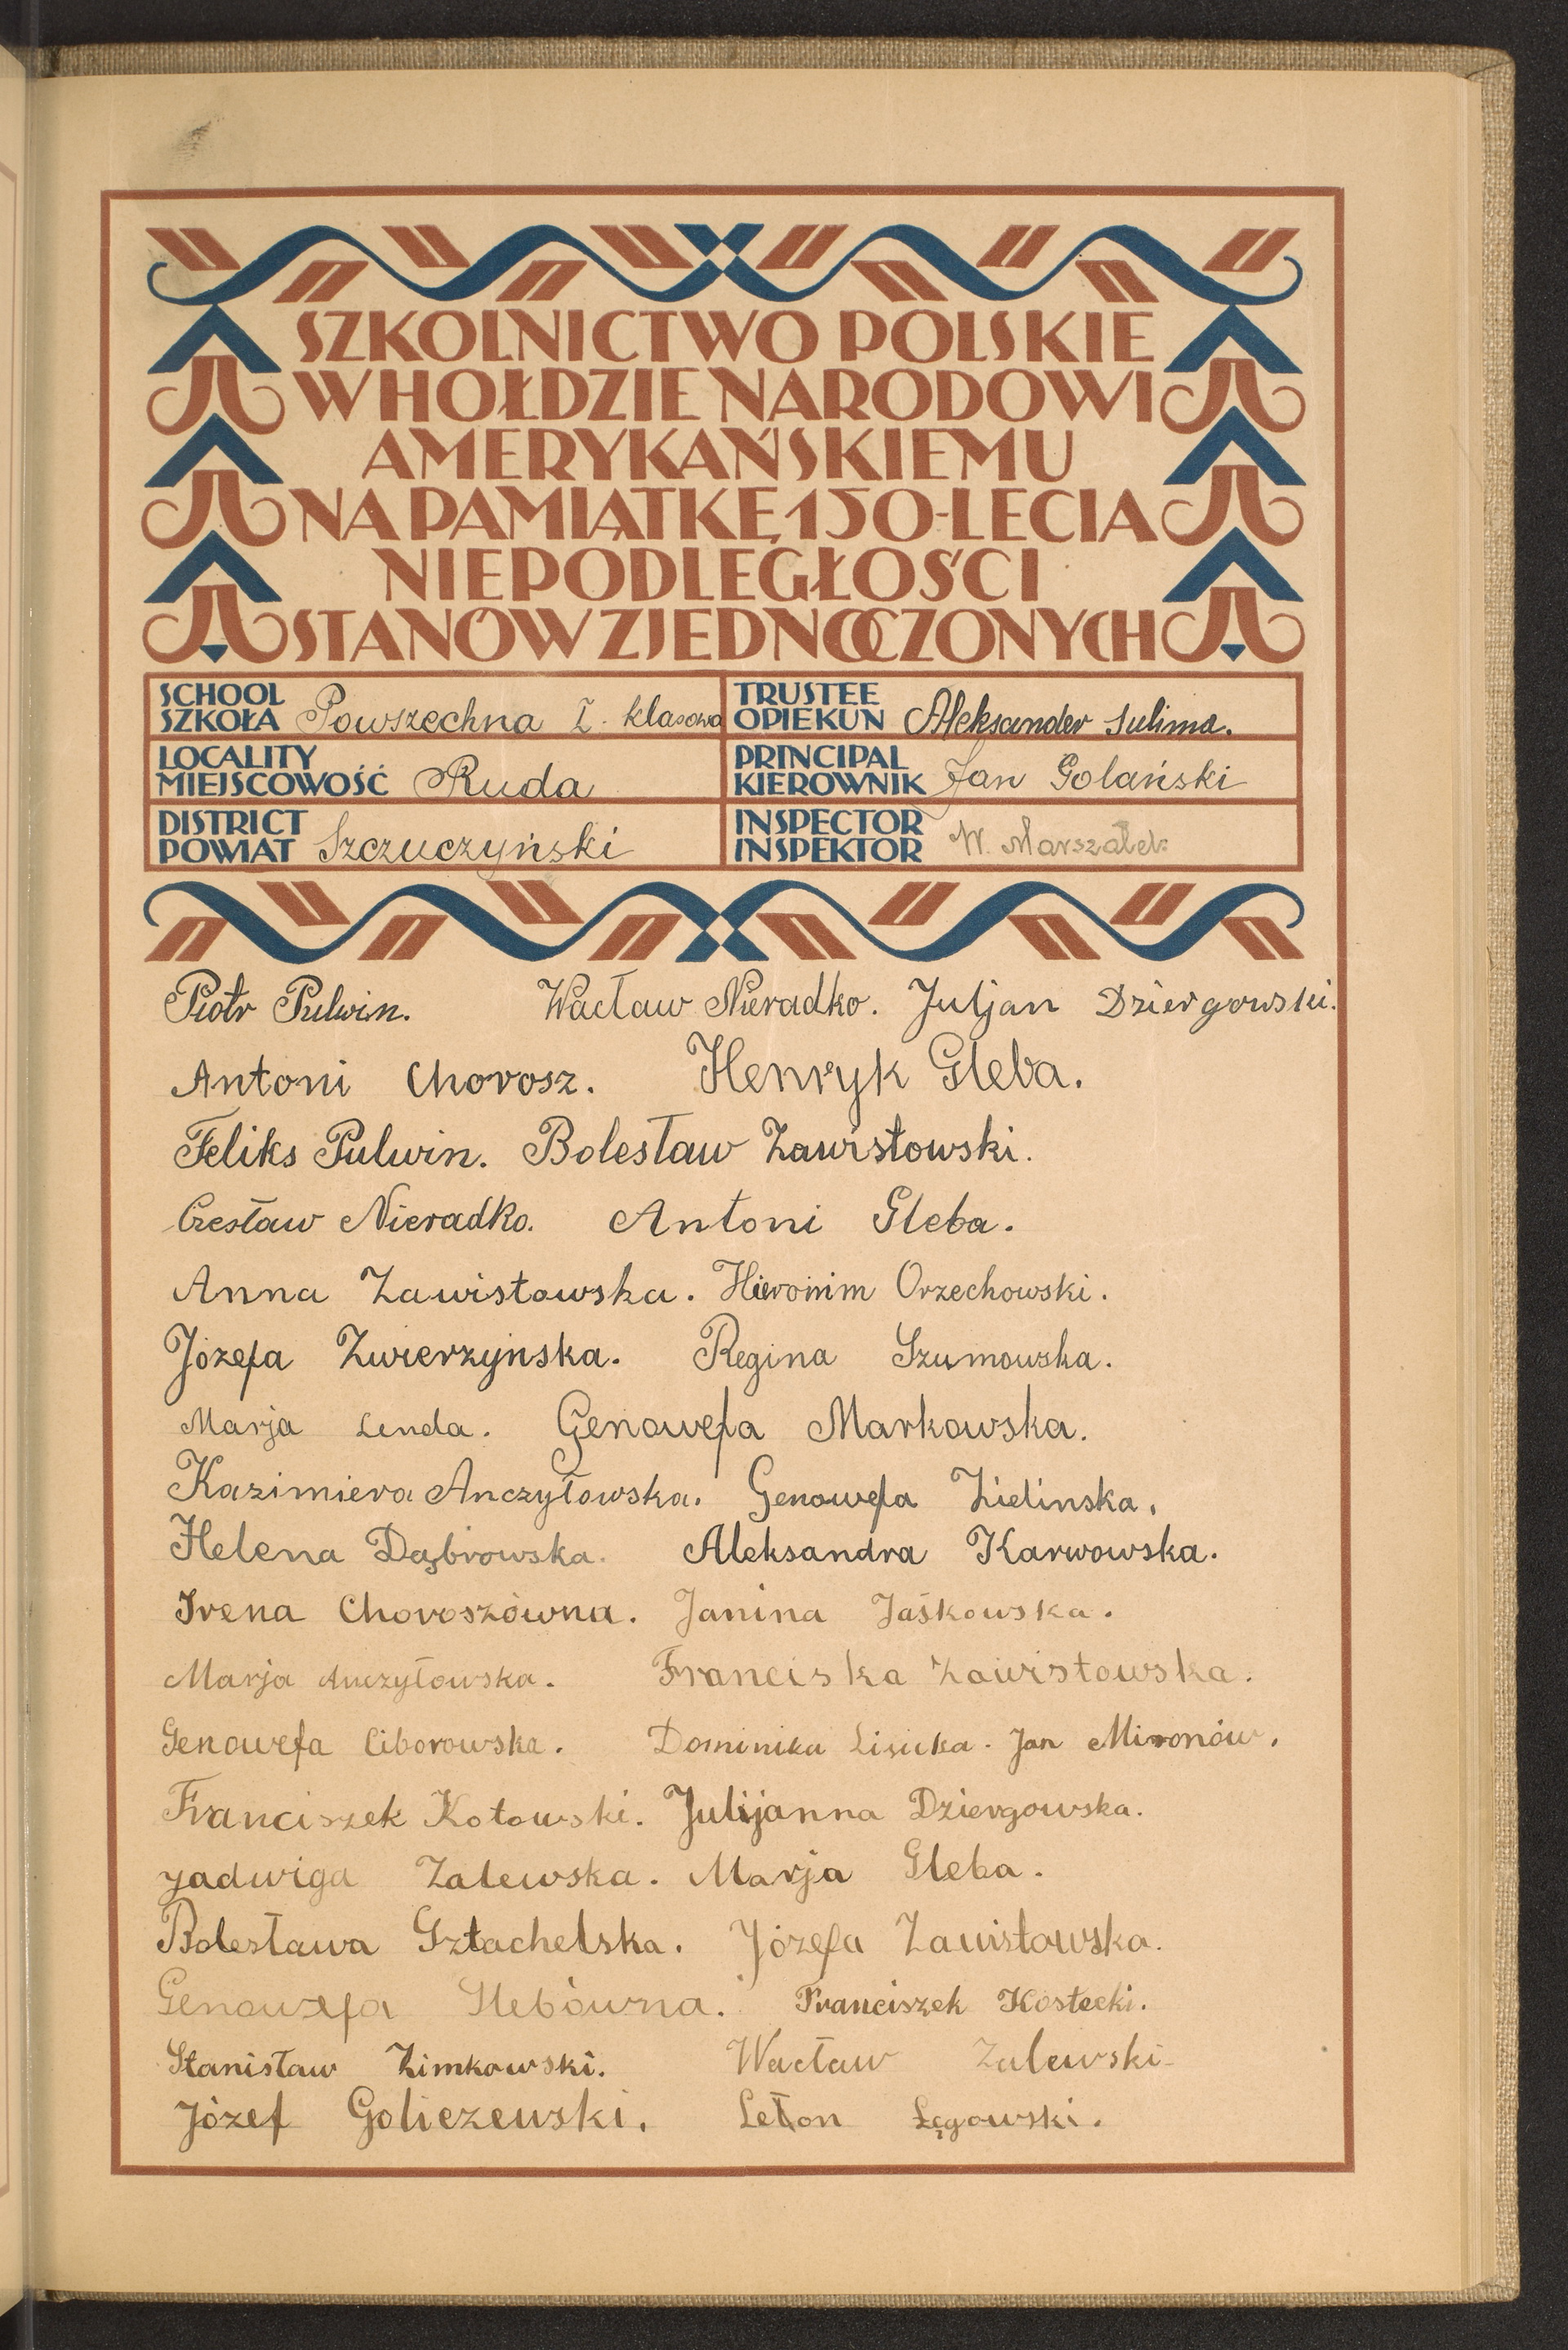 SZKOLNICTWO POLSKIE
W HOŁDZIE NARODOWI
AMERYKAŃSKIEMU
NA PAMIĄTKĘ 150-LECIA
NIEPODLEGŁOŚCI
STANÓW ZJEDNOCZONYCH
SCHOOL
SZKOŁA Powszechna I. klasowa
TRUSTEE
OPIEKUN Aleksander Sulima.
LOCALITY
MIEJSCOWOŚĆ Ruda
PRINCIPAL
KIEROWNIK Jan Golański
DISTRICT
POWIAT Szczuczyński
INSPECTOR
INSPEKTOR W. Marszałek
Piotr Pulwin. Wacław Nieradko. Juljan Dziergowski.
Antoni Chorosz. Henryk Gleba.
Feliks Pulwin. Bolesław Zawistowski.
Czesław Nieradko. Antoni Gleba.
Anna Zawistowska. Hieronim Orzechowski.
Józefa Zwierzyńska. Regina Szumowska.
Marja Lenda. Genowefa Markowska.
Kazimiera Anczyłowska. Genowefa Zielinska.
Helena Dąbrowska. Aleksandra Karwowska.
Irena Choroszówna. Janina Jaśkowska.
Marja Anczyłowska. Franciska Zawistowska.
Genowefa Ciborowska. Dominika Lisicka. Jan Mironów.
Franciszek Kotowski. Julijanna Dziergowska.
Jadwiga Zalewska. Marja Gleba.
Bolesława Sztachelska. Józefa Zawistowska.
Genowefa Glebówna. Franciszek Kostecki.
Stanisław Zimkowski. Wacław Zalewski.
Józef Goliczewski. Łęgowski.